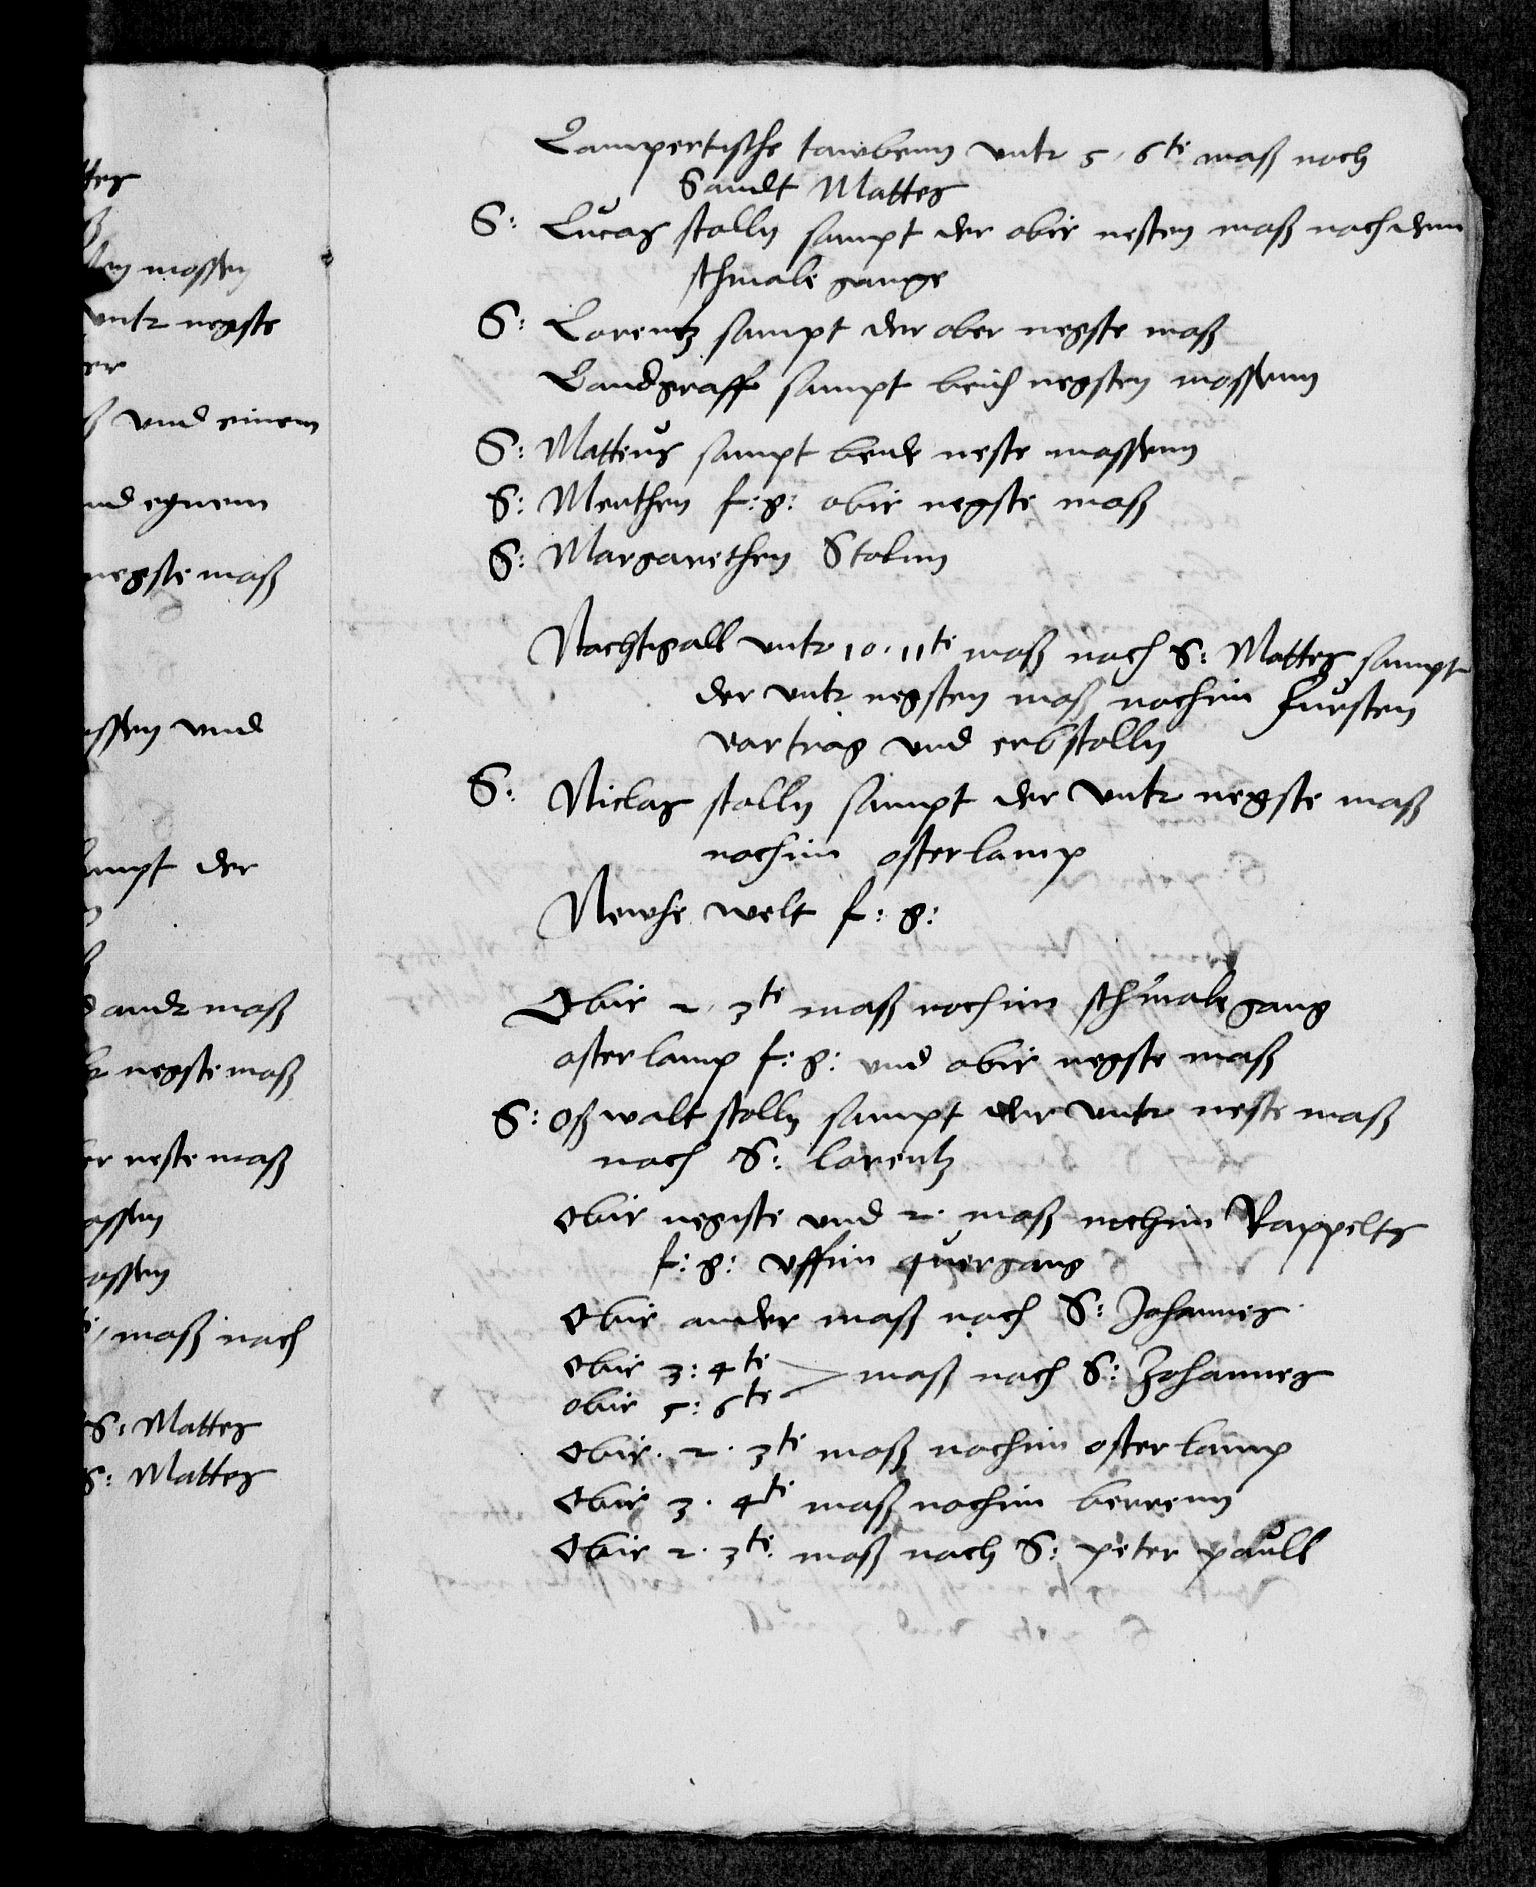 tes
len mossen
untr negste
er
ß und einem
und eynem
negste maß
ossen und
sampt der
d andr maß
negste maß
er neste maß
assen
ossen
maß nach
S: Mattes
S: Mattes
Lampertische tawbenn untr 5, 6te maß noch
Sandt Mattes
S: Lucas stolln sampt der obir nesten maß nach dem
schmale gange
S: Lorentz sampt der ober negste maß
Landgraff sampt beids negsten mossenn
S: Matteus sampt beide neste mossenn
S: Merthen f: g: obir negste maß
S: Margarethen Stolnn
Nachtgall untr 10. 11te maß nach S: Mattes sampt
der untr negsten maß nochim fursten
vortrag und erbstolln
S: Niclas stolln sampt der untr negste maß
nochim osterlamp
Newhe welt f: g:
Obir 2. 3te maß nochim schmale gang
osterlamp f: g: und obir negste maß
S: Oßwalt stolln sampt der untr neste maß
nach S: Lorentz
Obir negste und 2. maß nochim Rappolts
f: g: uffim quergang
Obir ander maß nach S: Johannes
Obir 3: 4te
obir 5: 6te maß nach S: Johannes
Obir. 2. 3te maß nochim osterlamp
Obir 3. 4te maß nochim berrenn
Obir 2. 3te. maß nach S: peter paull